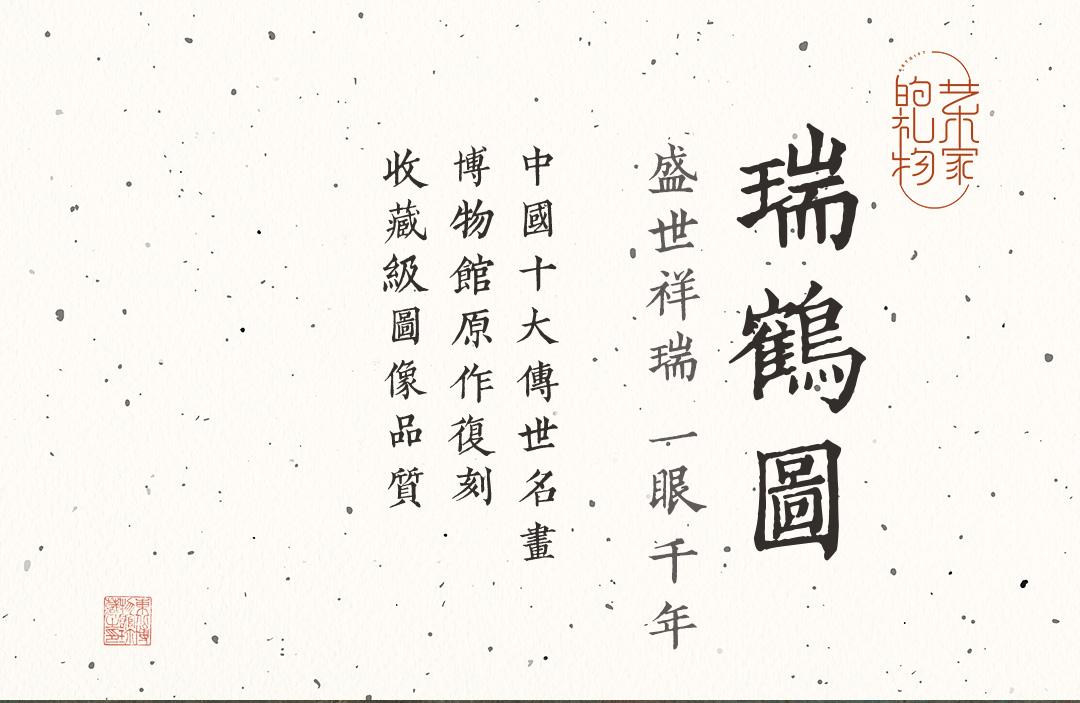 艺术家
的礼物
瑞鶴圖
盛世祥瑞 一眼千年
中國十大傳世名畫
博物館原作復刻
收藏級圖像品質